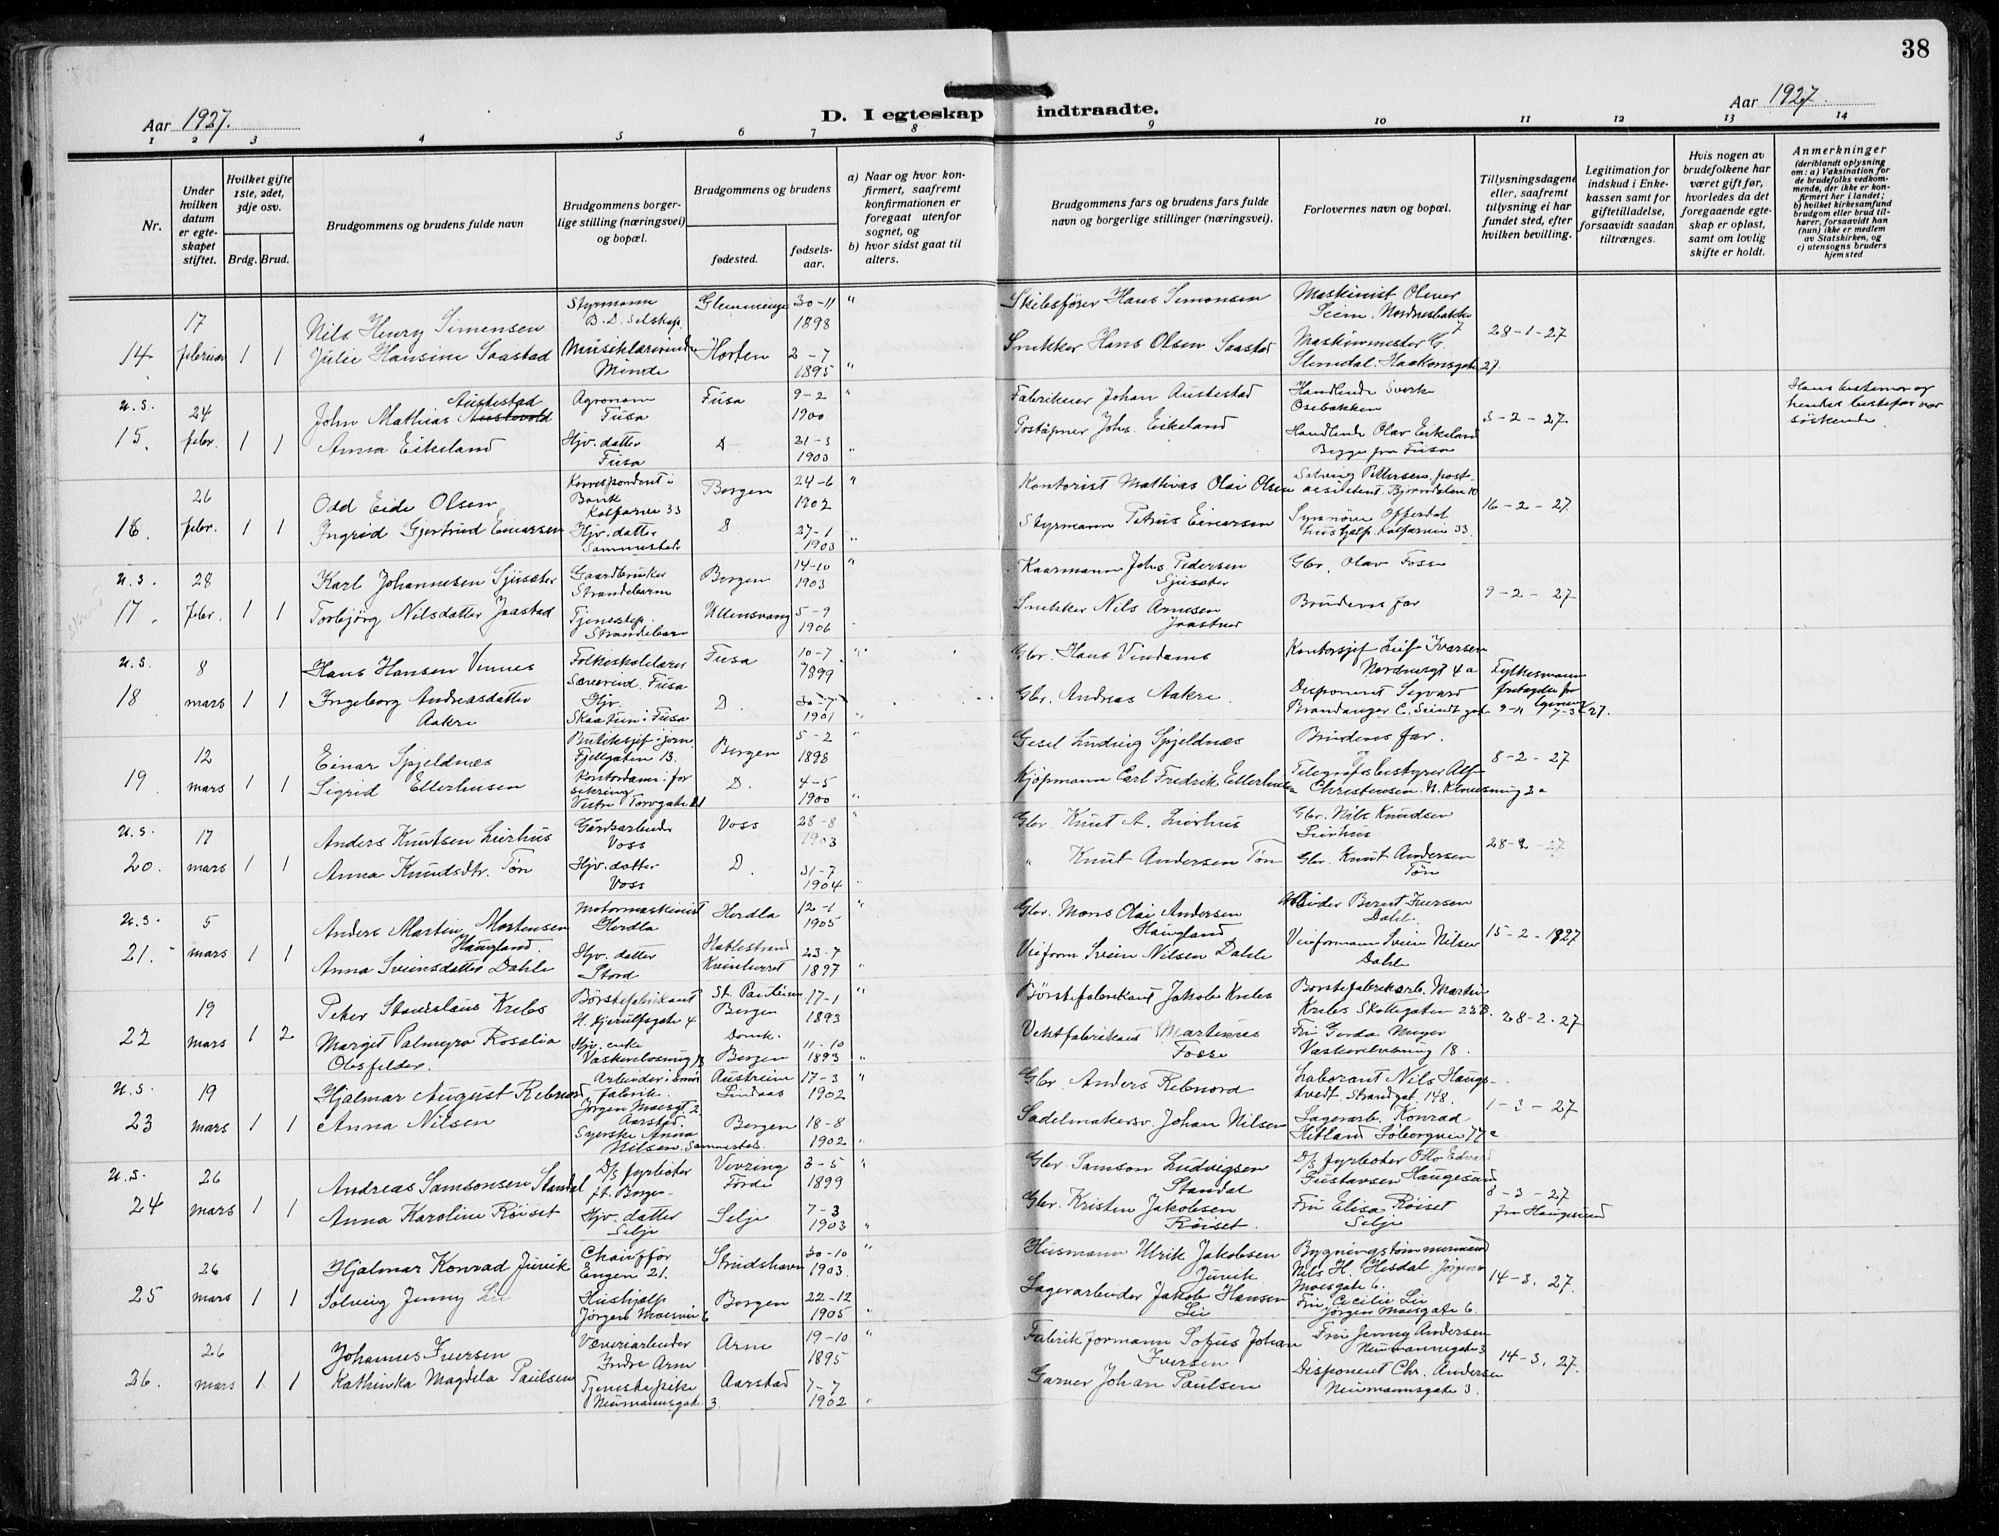 38
Aar 1927.
D. I egteskap indtraadte.
Aar 1927.
1 2 3 4 5 6 7 8 9 10 11 12 13 14
Nr.
Under hvilken datum er egteskapet stiftet.
Hvilket gifte 1ste, 2det, 3dje osv.
Brdg. Brud.
Brudgommens og brudens fulde navn
Brudgommens borgerlige stilling (næringsvei) og bopæl.
Brudgommens og brudens
fødested.
fødselsaar.
a) Naar og hvor konfirmert, saafremt konfirmationen er foregaat utenfor sognet, og
b) hvor sidst gaat til alters.
Brudgommens fars og brudens fars fulde navn og borgerlige stillinger (næringsvei).
Forlovernes navn og bopæl.
Tillysningsdagene eller, saafremt tillysning ei har fundet sted, efter hvilken bevilling.
Legitimation for indskud i Enkekassen samt for giftetilladelse, forsaavidt saadan tiltrænges.
Hvis nogen av brudefolkene har været gift før, hvorledes da det foregaaende egteskap er opløst, samt om lovlig skifte er holdt.
Anmerkninger
(deriblandt oplysning om: a) Vaksination for de brudefolks vedkommende, der ikke er konfirmert her i landet; b) hvilket kirkesamfund brudgom eller brud tilhører, forsaavidt han (hun) ikke er medlem av Statskirken, og c) utensogns bruders hjemsted
14 17 februar 1 1 Nils Henry Simensen Styrmann B. D. Selskap. Glemminge 30-11 1898 " Skibsfører Hans Simonsen Maskinist Oliver Seem, Nordnesbakke 7 28-1-27
Julie Hansine Saastad Musiklærerinde Minde Horten 2-7 1895 " Snekker Hans Olsen Saastad Maskinmester C. Stendal. Haakonsgate 27.
u.s. 15. 24 febr. 1 1 John Mathias Austestad Austevold Agronom Fusa Fusa 9-2 1900 " Fabrikeier Johan Austestad Handlende Sverke Osebakken 3-2-27 Hans bestemor og hendes bestefar var søskende.
Anna Eikeland Hjv. datter Fusa D 21-3 1903 " Poståpner Johs. Eikeland Handlende Olav Eikeland Begge fra Fusa
16. 26 febr. 1 1 Odd Eide Olsen Korrespondent i Bank Kalfarvei 33 Bergen 24-6 1902 " Kontorist Mathias Olai Olsen Solveig Pettersen, postassistent. Bjørndalen 10 16-2-27
Ingrid Gjertrud Einarsen Hjv. datter Sammesteds D. 27-1 1903 " Styrmann Petrus Einarsen Synnøve Offerdal hushjælp Kalfarvei 33.
u.s. 17. 28 febr. 1 1 Karl Johannesen Sjusæter Gaardbruker Strandebarm Bergen 14-10 1903 " Kaarmann Johs. Pedersen Sjusæter Gbr. Olav Fosse 9-2-27
Torbjørg Nilsdatter Jaastad Tjenestep. Strandebarm Ullensvang 5-9 1906 Snekker Nils Arnesen Jaastad Brudens far
u.s. 18 8 mars 1 1 Hans Hansen Vinnes Folkeskolelærer Sævareid, Fusa Fusa 10-7 1899 " Gbr. Hans Vindenes Kontorsjef Leif Ivarsen Nordnesgt 4a Fylkesmann
Ingeborg Andreasdatter Aakre Hjv. Skaatun i Fusa D. 30-7 1901 " Gbr. Andreas Aakre. Disponent Sigvard Brandanger C. Sundtsgate 9-11 7-3-27.
19. 12 mars 1 1 Einar Spjeldnæs Butiksjef i jern Fjellgaten 13. Bergen 5-2 1898 " Gesel Ludvig Spjeldnæs Brudens far. 8-2-27
Sigrid Ellerhusen Kontordame i forsikring Vestre Torvgate 21 D. 4-5 1900 " Kjøpmann Carl Fredrik Ellerhusen og Telegrafbestyrer Alf Christensen
u.s. 20. 17 mars 1 1 Anders Knutsen Lirhus Gårdsarbeider Voss Voss 28-8 1903 " Gbr. Knut A. Lirhus Gbr. Nils Knudsen Lirhus 28-2-27
Anna Knudsdtr. Tøn Hjv. datter Voss D. 31-7 1904 " Knut Andersen Tøn Gbr. Knut Andersen Tøn
u.s. 21. 5 mars 1 1 Anders Martin Mortensen Haugland. Motormaskinist Herdla Herdla 12-1 1905 " Gbr. Mons Olai Andersen Haugland Berent Iversen Dahle 15-2-1927
Anna Sveinsdatter Dahle Hjv. datter Stord Hatlestrand Kvinherret 23-7 1897 " Svein Nilsen Dahle Svein Nilsen Dahle
22 19 mars 1 2 Peter Stanislaus Krebs Børstefabrikant H. Kjerulfsgate 4 St. Paul kirke Bergen 17-1 1893 " Børstefabrikant Jakob Krebs Børstefabrikarb. Martin Krebs Skottegaten 22B. 28-2-27
Margit Palmyra Rosalia Olsfelder. Hjv. enke Vaskerelvsmug 18 Domk. Bergen 11-10 1893 Vektfabrikant Martinius Fosse Fru Gerda Meyer Vaskerelvsmug 18.
u.s. 23 19 mars 1 1 Hjalmar August Rebnord Arbeider i smørfabrik. Jørgen Moesgt. 2 Aarstad. Austrheim Lindaas 17-3 1902 " Gbr. Anders Rebnord Laborant Nils Haugstvedt. Strandgat. 148. 1-3-27
Anna Nilsen Syerske Anna Nilsen. Sammesteds. Bergen 18-8 1902 " Sadelmakersv. Johan Nilsen Lagerarb. Konrad Hetland Solborgvei 77c
u.s. 24 26 mars 1 1 Andreas Samsonsen Standal D/s fyrbøter f.t. Bergen Vevring Førde 3-5 1899 " Gbr. Samson Ludvigsen Standal D/s fyrbøter Otto Edvard Gustavsen Haugesund 8-3-27 fra Haugesund
Anna Karoline Røiset Hjv. datter Selje Selje 7-3 1903 " Gbr. Kristen Jakobsen Røiset. Fru Elisa Røiset Selje
25 26 mars 1 1 Hjalmar Konrad Juvik Chauffør Engen 21. Strudshavn 30-10 1903. " Husmann Ulrik Jakobsen Juvik Bygningstømmermand Nils H. Hesdal Jørgen Moesgate 6. 14-3. 27.
Solveig Jenny Lie Hushjælp Jørgen Moesvei 6 Bergen 22-12 1905 " Lagerarbeider Jakob Hansen Lie Fru Cecilie Lie Jørgen Moesgate 6.
26. 26 mars 1 1 Johannes Iversen Væveriarbeider Indre Arne Arne 19-10 1895 " Fabrikformann Sofus Johan Iversen Fru Jenny Andersen Neumannsgate 3 14-3. 27.
Kathinka Magdela Paulsen Tjenestepike Neumannsgate 3. Aarstad 7-7 1902 " Garver Johan Paulsen Disponent Chr. Andersen Neumannsgate 3.